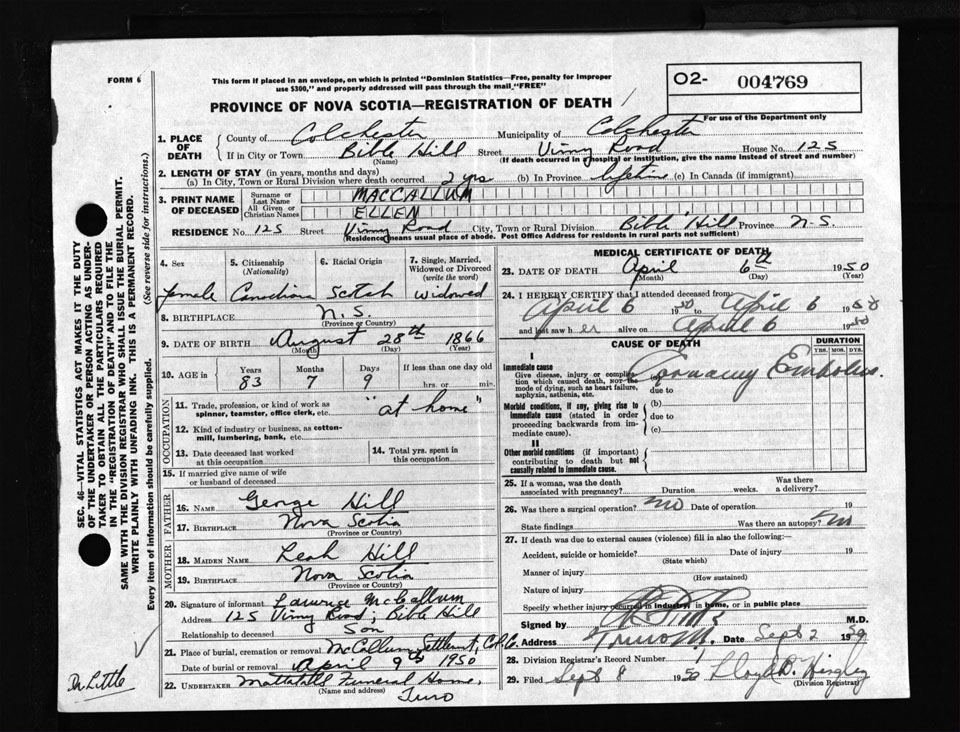 FORM 6
This form if placed in an envelope, on which is printed "Dominion Statistics—Free, penalty for improper
use $300," and properly addressed will pass through the mail "FREE"
O2- 004769
For use of the Department only
PROVINCE OF NOVA SCOTIA—REGISTRATION OF DEATH
1. PLACE OF DEATH
County of Colchester Municipality of Colchester
If in City or Town Bible Hill Street Vimy Road House No. 125
(Name) (If death occurred in hospital or institution, give the name instead of street and number)
2. LENGTH OF STAY (in years, months and days)
(a) In City, Town or Rural Division where death occurred 2 yrs (b) In Province lifetime (c) In Canada (if immigrant)
3. PRINT NAME OF DECEASED
Surname or Last Name MACCALLUM
All Given or Christian Names ELLEN
RESIDENCE No. 125 Street Vimy Road City, Town or Rural Division Bible Hill Province N.S.
(Residence means usual place of abode. Post Office Address for residents in rural parts not sufficient)
4. Sex 5. Citizenship (Nationality) 6. Racial Origin 7. Single, Married, Widowed or Divorced (write the word)
female Canadian Scotch widowed
8. BIRTHPLACE N.S.
(Province or Country)
9. DATE OF BIRTH August 28th 1866
(Month) (Day) (Year)
10. AGE in Years Months Days If less than one day old
83 7 9 hrs. or min.
OCCUPATION
11. Trade, profession, or kind of work as spinner, teamster, office clerk, etc. "at home"
12. Kind of industry or business, as cotton-mill, lumbering, bank, etc.
13. Date deceased last worked at this occupation 14. Total yrs. spent in this occupation
15. If married give name of wife or husband of deceased
FATHER
16. NAME George Hill
17. BIRTHPLACE Nova Scotia
(Province or Country)
MOTHER
18. MAIDEN NAME Leah Hill
19. BIRTHPLACE Nova Scotia
(Province or Country)
20. Signature of informant McCallum
Address 125 Vimy Road, Bible Hill
Relationship to deceased Son
21. Place of burial, cremation or removal McCallum Settlement, Col. Co.
Date of burial or removal April 9th 1950
22. UNDERTAKER Mattatall Funeral Home,
(Name and address) Truro
MEDICAL CERTIFICATE OF DEATH
23. DATE OF DEATH April 6th 1950
(Month) (Day) (Year)
24. I HEREBY CERTIFY that I attended deceased from
April 6 1950 to April 6 1950
and last saw her alive on April 6 1950
CAUSE OF DEATH DURATION
YRS. MOS. DYS.
I
Immediate cause
Give disease, injury or complication which caused death, NOT the mode of dying, such as heart failure, asphyxia, asthenia, etc.
(a) Coronary Embolus.
due to
Morbid conditions, if any, giving rise to immediate cause (stated in order proceeding backwards from immediate cause).
(b)
due to
(c)
II
Other morbid conditions (if important) contributing to death but not causally related to immediate cause.
25. If a woman, was the death associated with pregnancy? Duration weeks. Was there a delivery?
26. Was there a surgical operation? no Date of operation 19
State findings Was there an autopsy? no
27. If death was due to external causes (violence) fill in also the following:—
Accident, suicide or homicide? Date of injury 19
(State which)
Manner of injury
(How sustained)
Nature of injury
Specify whether injury occurred in industry, in home, or in public place
Signed by M.D.
Address Truro Date Sept 2 1950
28. Division Registrar's Record Number
29. Filed Sept 8 1950 Lloyd
(Division Registrar)
SEC. 46—VITAL STATISTICS ACT MAKES IT THE DUTY
OF THE UNDERTAKER OR PERSON ACTING AS UNDER-
TAKER TO OBTAIN ALL THE PARTICULARS REQUIRED
IN THE "REGISTRATION OF DEATH" AND TO FILE THE
SAME WITH THE DIVISION REGISTRAR WHO SHALL ISSUE THE BURIAL PERMIT.
WRITE PLAINLY WITH UNFADING INK. THIS IS A PERMANENT RECORD.
Every item of information should be carefully supplied. (See reverse side for instructions.)
Dr. Little